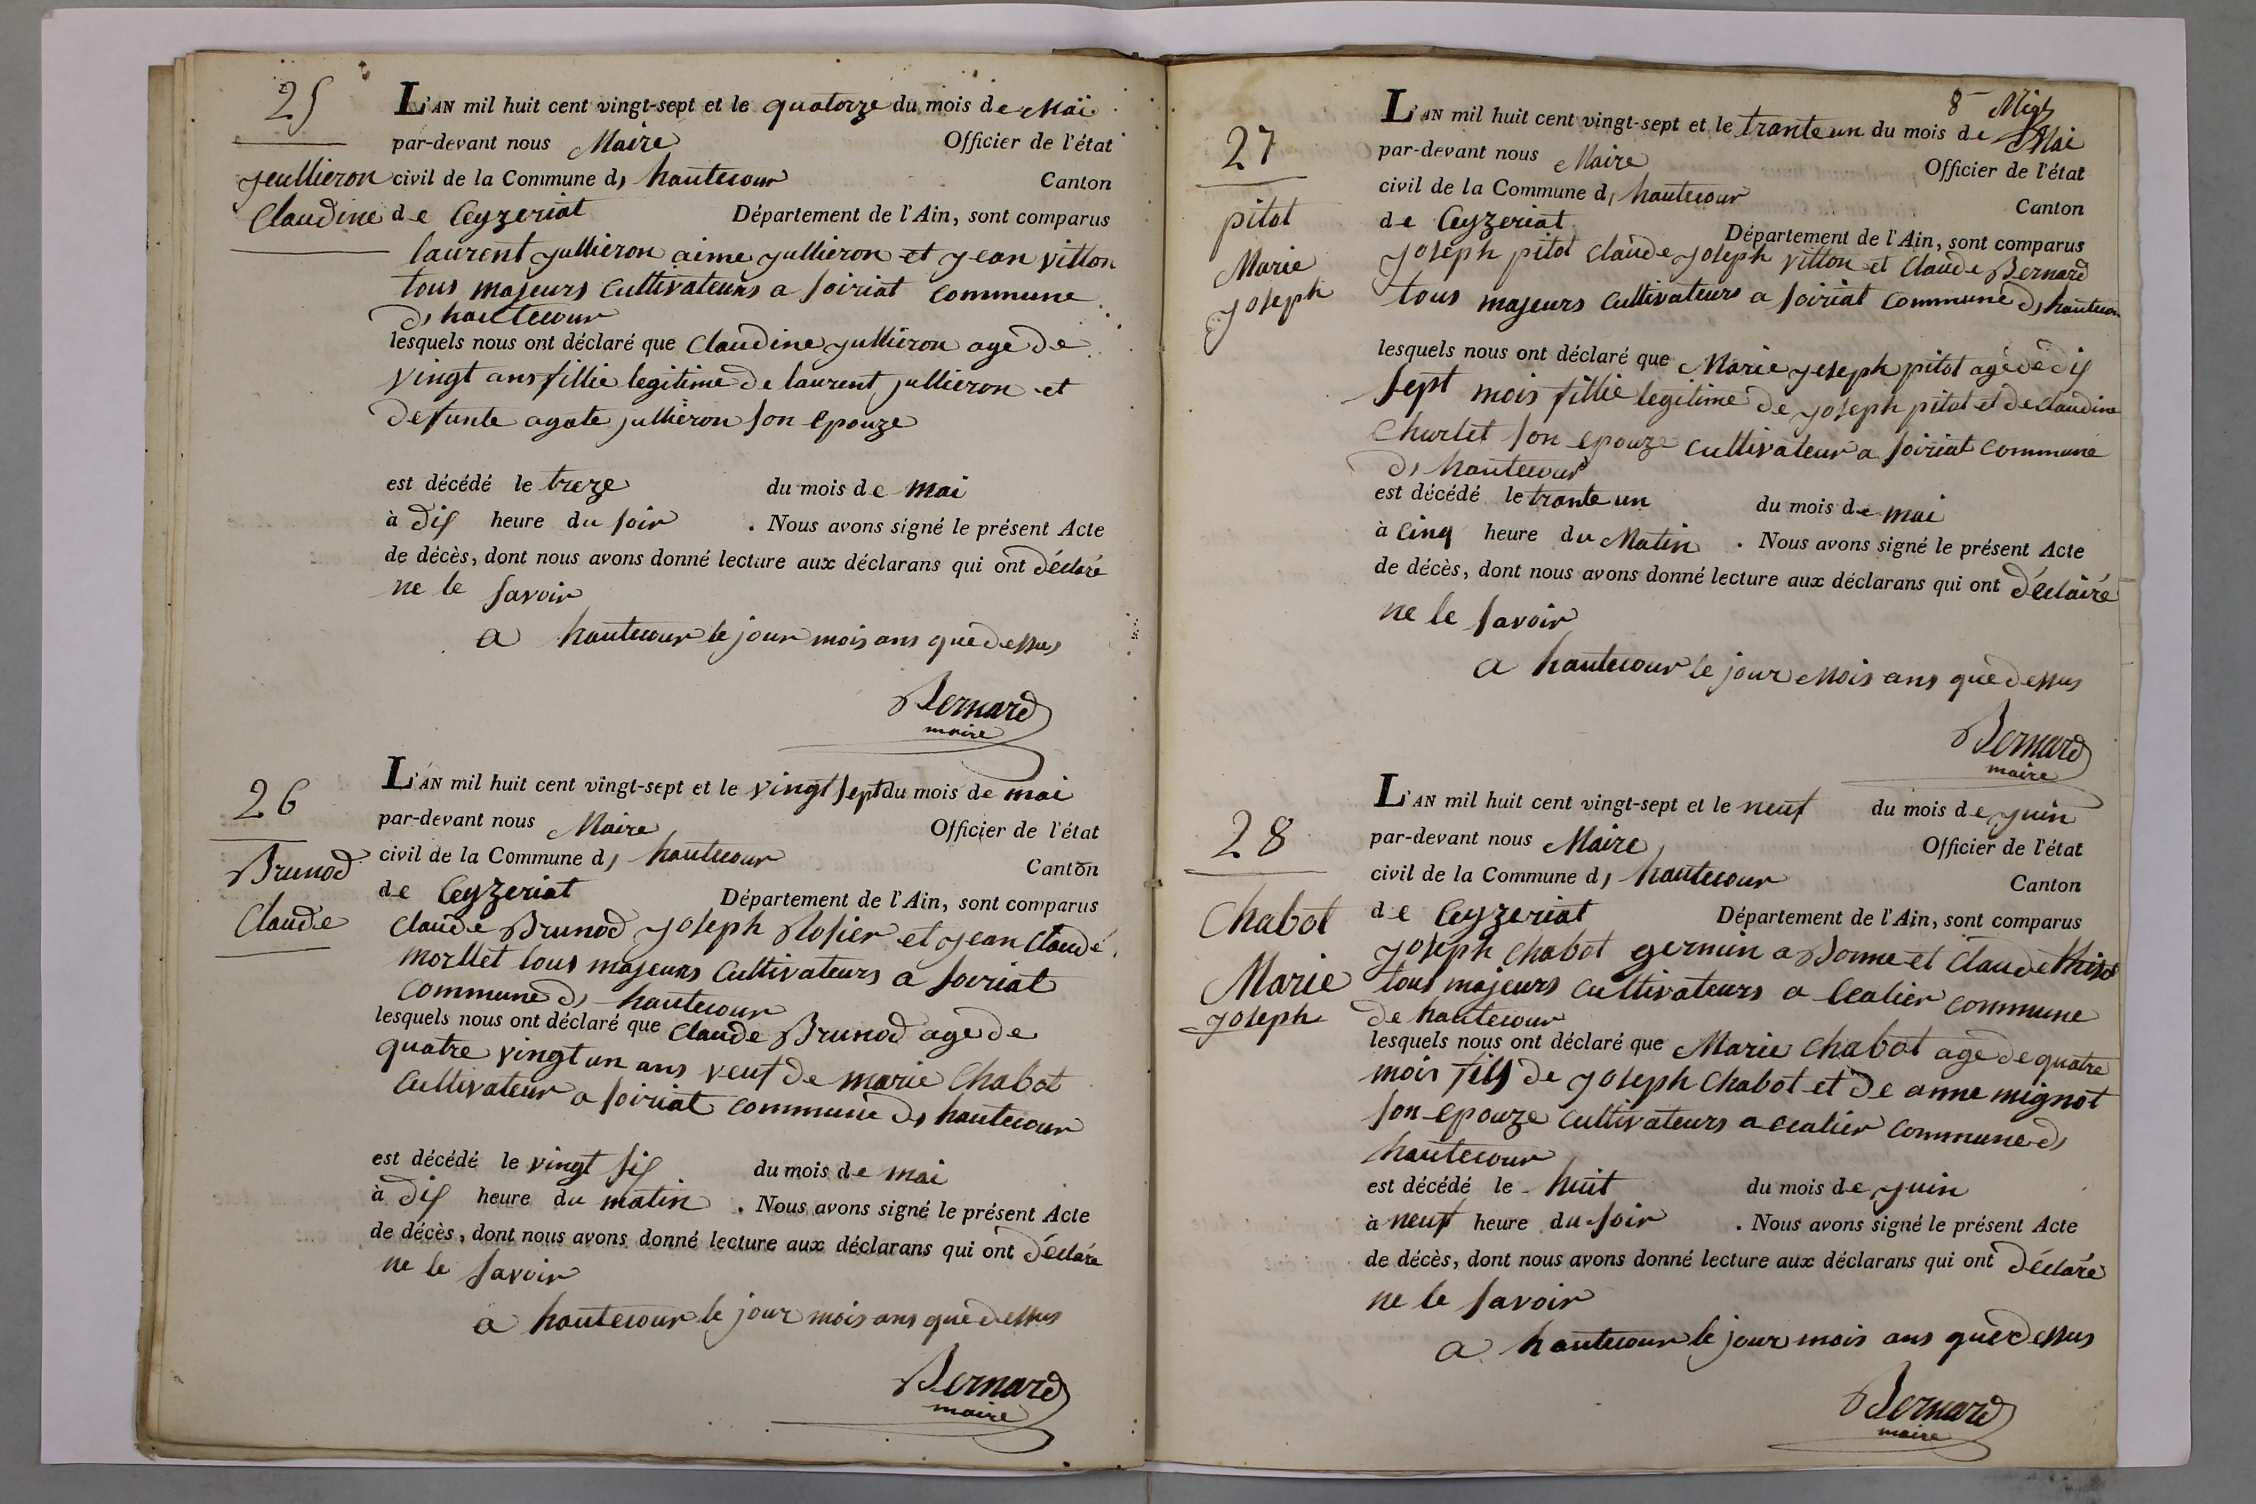 25
L'AN mil huit cent vingt-sept et le quatorze du mois de Mai
par-devant nous Maire Officier de l'état
yeullieron civil de la Commune d, hautecour Canton
Claudine de Ceyzeriat Département de l'Ain, sont comparus
laurent jullieron aime jullieron et jean vitton
tous majeurs cultivateurs a soiriat commune
d, hautecour
lesquels nous ont déclaré que Claudine jullieron agé de
vingt ans fillie legitime de laurent jullieron et
defunte agate jullieron son epouze
est décédé le treze du mois de mai
à dis heure du soir . Nous avons signé le présent Acte
de décès, dont nous avons donné lecture aux déclarans qui ont déclaré
ne le savoir
a hautecour le jour mois ans que dessus
Bernard
maire
26
L'AN mil huit cent vingt-sept et le vingt sept du mois de mai
par-devant nous Maire Officier de l'état
Brunod civil de la Commune d, hautecour Canton
de Ceyzeriat Département de l'Ain, sont comparus
Claude Claude Brunod joseph Rosier et jean Claude
morllet tous majeurs cultivateurs a soiriat
commune d, hautecour
lesquels nous ont déclaré que Claude Brunod age de
quatre vingt un ans veuf de marie Chabot
cultivateur a soiriat commune d, hautecour
est décédé le vingt sis du mois de mai
à dis heure du matin . Nous avons signé le présent Acte
de décès, dont nous avons donné lecture aux déclarans qui ont déclaré
ne le savoir
a hautecour le jour mois ans que dessus
Bernard
maire
8
27
L'AN mil huit cent vingt-sept et le trante un du mois de Mai
par-devant nous Maire Officier de l'état
civil de la Commune d, hautecour Canton
pitot de Ceyzeriat Département de l'Ain, sont comparus
Marie joseph pitot Claude joseph vitton et Claude Bernard
joseph tous majeurs cultivateurs a soiriat commune d, hautecour
lesquels nous ont déclaré que Marie joseph pitot agé de dis
sept mois fillie legitime de joseph pitot et de claudine
Churlet son epouze cultivateur a soiriat commune
d, hautecour
est décédé le trante un du mois de mai
à cinq heure du Matin . Nous avons signé le présent Acte
de décès, dont nous avons donné lecture aux déclarans qui ont déclairé
ne le savoir
a hautecour le jour mois ans que dessus
Bernard
maire
28
L'AN mil huit cent vingt-sept et le neuf du mois de juin
par-devant nous Maire Officier de l'état
civil de la Commune d, hautecour Canton
Chabot de Ceyzeriat Département de l'Ain, sont comparus
joseph Chabot germin a Bonne et Claude
Marie tous majeurs cultivateurs a cealier commune
joseph de hautecour
lesquels nous ont déclaré que Marie Chabot age de quatre
mois fils de joseph Chabot et de anne mignot
son epouze cultivateurs a cealier commune d,
hautecour
est décédé le huit du mois de juin
à neuf heure du soir . Nous avons signé le présent Acte
de décès, dont nous avons donné lecture aux déclarans qui ont déclaré
ne le savoir
a hautecour le jour mois ans que dessus
Bernard
maire